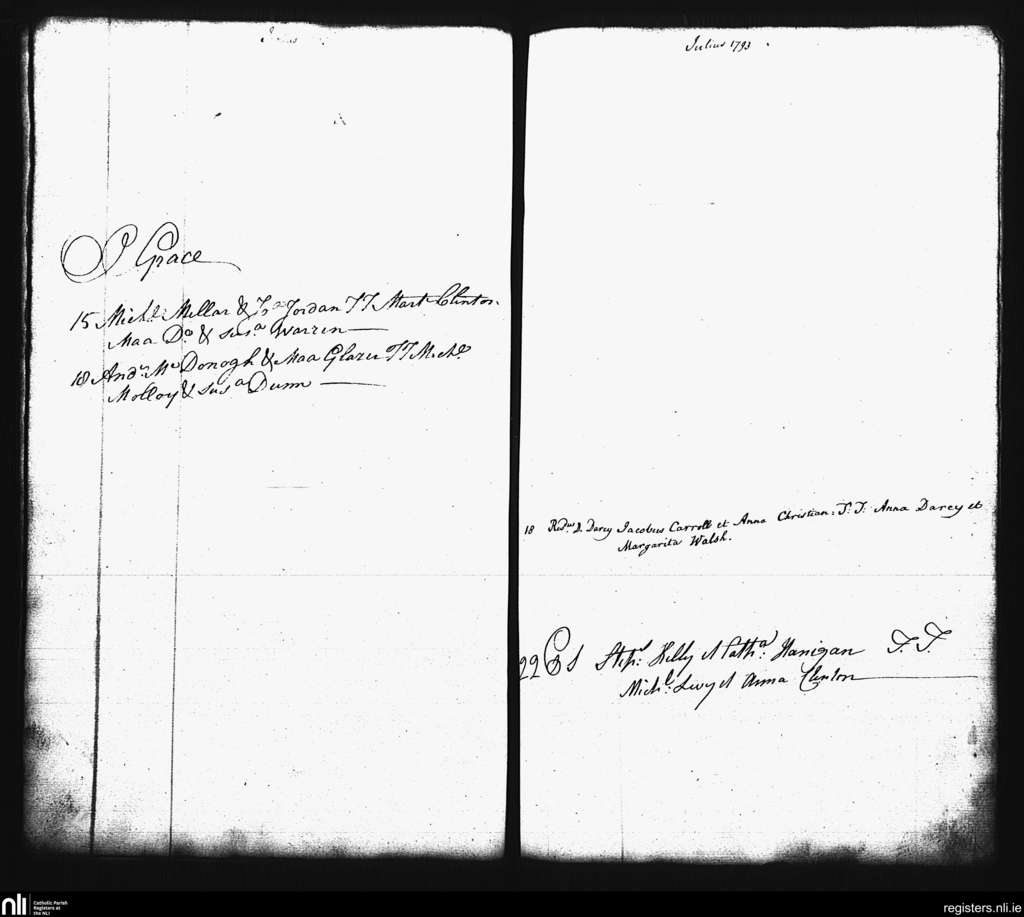 Julius 1793
P Grace
15 Michl. Millar & Jsa Jordan TT Mart Clinton
Maa Do & susa Warren
18 Andw. Mc Donogh & Maa Glazer TT Michl
Molloy & susa Dunn
18 Redus. D. Darcy Jacobus Carroll et Anna Christian: T. T: Anna Darcy et
Margarita Walsh.
22 Stepn: Kelly et Catha: Hanigan T. T.
Michl: et Anna Clinton
nli Catholic Parish
Registers at
the NLI
registers.nli.ie